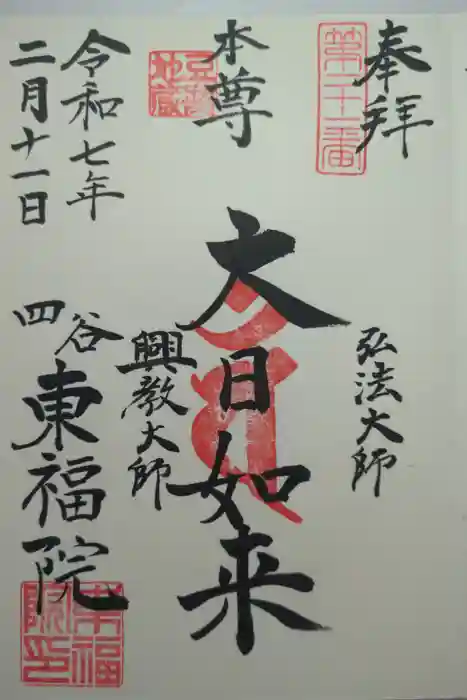 奉拝
第二十一番
弘法大師
本尊
豆腐地蔵
大日如来
興教大師
令和七年
二月十一日
四谷
東福院
東福院印